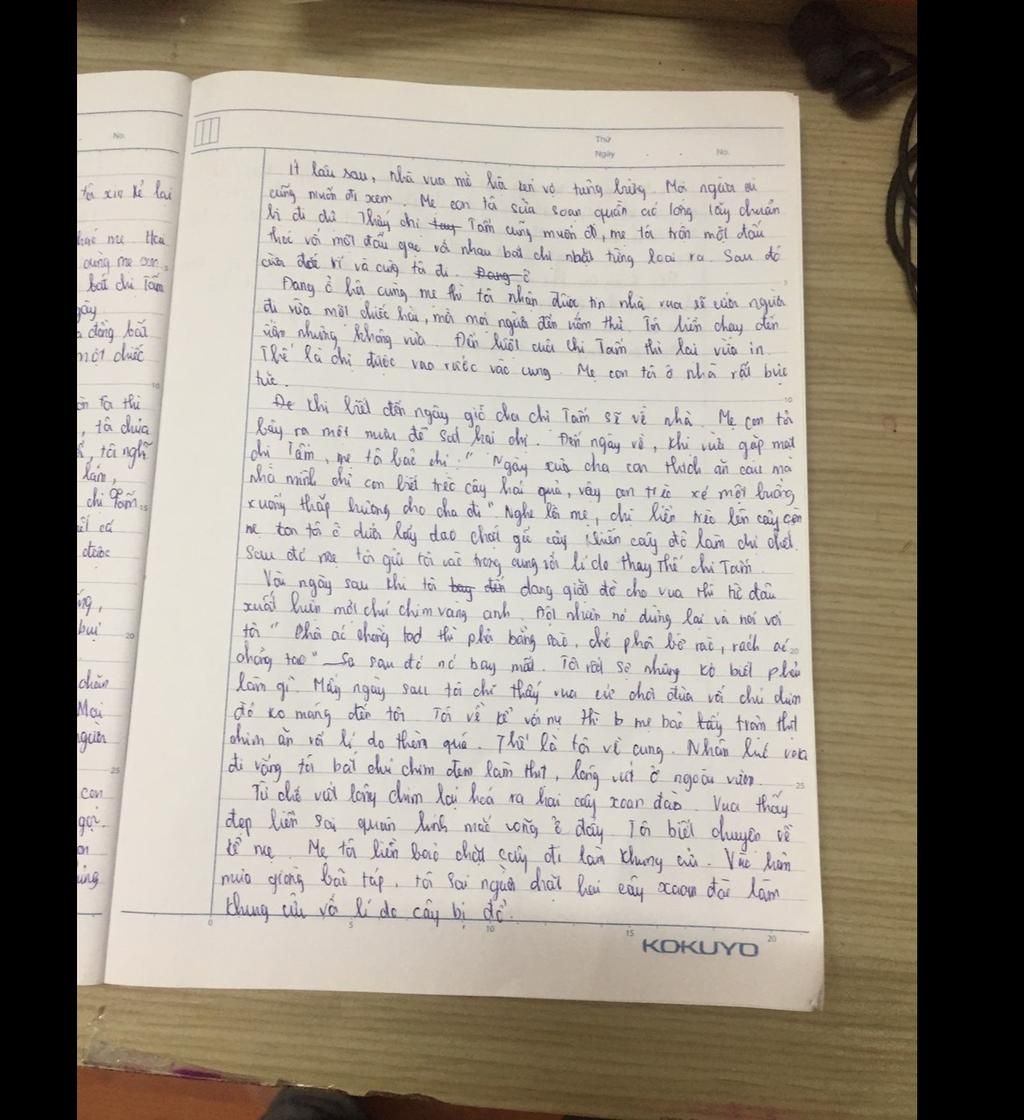 No.
Thứ
Ngày
No.
tôi xin kể lại
mẹ Hoa
cùng mẹ con
bắt chị Tấm
gày
đồng bắt
một chiếc
10
tôi thì
, tôi chưa
, tôi nghĩ
lắm,
chị Tấm 15
cá
được
bụi 20
chăn
Mọi
người
25
con
gọi.
Ít lâu sau, nhà vua mở hội tưng bừng. Mọi người ai
cũng muốn đi xem. Mẹ con tôi sửa soạn quần áo lộng lẫy chuẩn
bị đi dự. Thấy chị tay Tấm cũng muốn đi, mẹ tôi trộn một đấu
thóc với một đấu gạo với nhau bắt chị nhặt từng loại ra. Sau đó
và cùng tôi đi. Đang ở 5
Đang ở hội cùng mẹ thì tôi nhận được tin nhà vua sẽ cưới người
đi vừa một chiếc hài, mời mọi người đến ướm thử. Tôi liền chạy đến
nhưng không vừa. Đến lượt của chị Tấm thì lại vừa in.
Thế là chị được vào rước vào cung. Mẹ con tôi ở nhà rất bực
tức. 10
Khi biết đến ngày giỗ cha chị Tấm sẽ về nhà. Mẹ con tôi
bày ra một mưu để sát hại chị. Đến ngày về, khi vừa gặp mặt
chị Tấm, mẹ tôi bảo chị: " Ngày xưa cha con thích ăn cau mà
nhà mình chỉ con biết trèo cây hái quả, vậy con trèo xé một buồng
xuống thắp hương cho cha đi" Nghe lời mẹ, chị liền trèo lên cây còn
mẹ con tôi ở dưới lấy dao chặt gốc cây khiến cây đổ làm chị chết.
Sau đó mẹ tôi gửi tôi vào trong cung với lí do thay thế chị Tấm.
Vài ngày sau khi tôi đang giặt đồ cho vua thì từ đâu
xuất hiện một chú chim vàng anh. Đột nhiên nó dừng lại và nói với
tôi " Phơi áo chồng tao thì phơi bằng sào, chớ phơi bờ rào, rách áo 20
chồng tao" Sa sau đó nó bay mất. Tôi rất sợ nhưng ko biết phải
làm gì. Mấy ngày sau tôi chỉ thấy vua cứ chơi đùa với chú chim
đó ko màng đến tôi. Tôi về kể với mẹ thì b mẹ bảo lấy trộm thịt
chim ăn với lí do thèm quá. Thế là tôi về cung. Nhân lúc vua
đi vắng tôi bắt chú chim đem làm thịt, lông vứt ở ngoài vườn. 25
Từ chỗ vứt lông chim lại hoá ra hai cây xoan đào. Vua thấy
đẹp liền sai quan lính mắc võng ở đấy. Tôi biết chuyện về
kể mẹ. Mẹ tôi liền bảo chặt cây đi làm khung cửi. Vào hôm
mưa giông bão táp, tôi sai người chặt hai cây xoan đào làm
khung cửi với lí do cây bị đổ.
0 5 10 15 20
KOKUYO